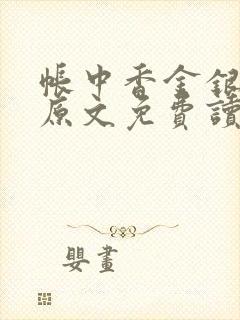 帳中香金銀
原文免費讀
嬰畫